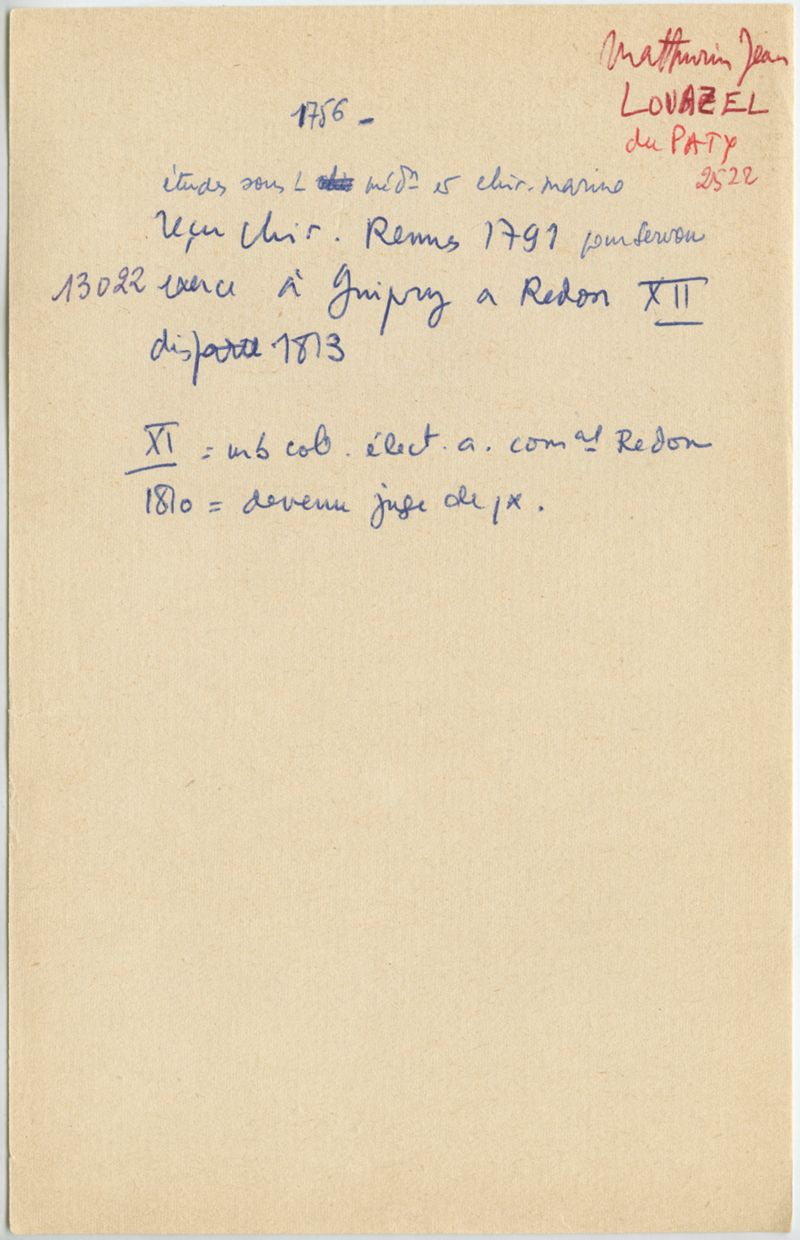 Mathurin Jean
LOUAZEL
du PATY
2522
1756 -
études sous L méd^n et chir. marine
reçu chir. Rennes 1791 pour Servon
13022 exerce à Guipry a Redon XII
disparu 1813
XI = mb col. élect. a. com^al Redon
1810 = devenu juge de px.